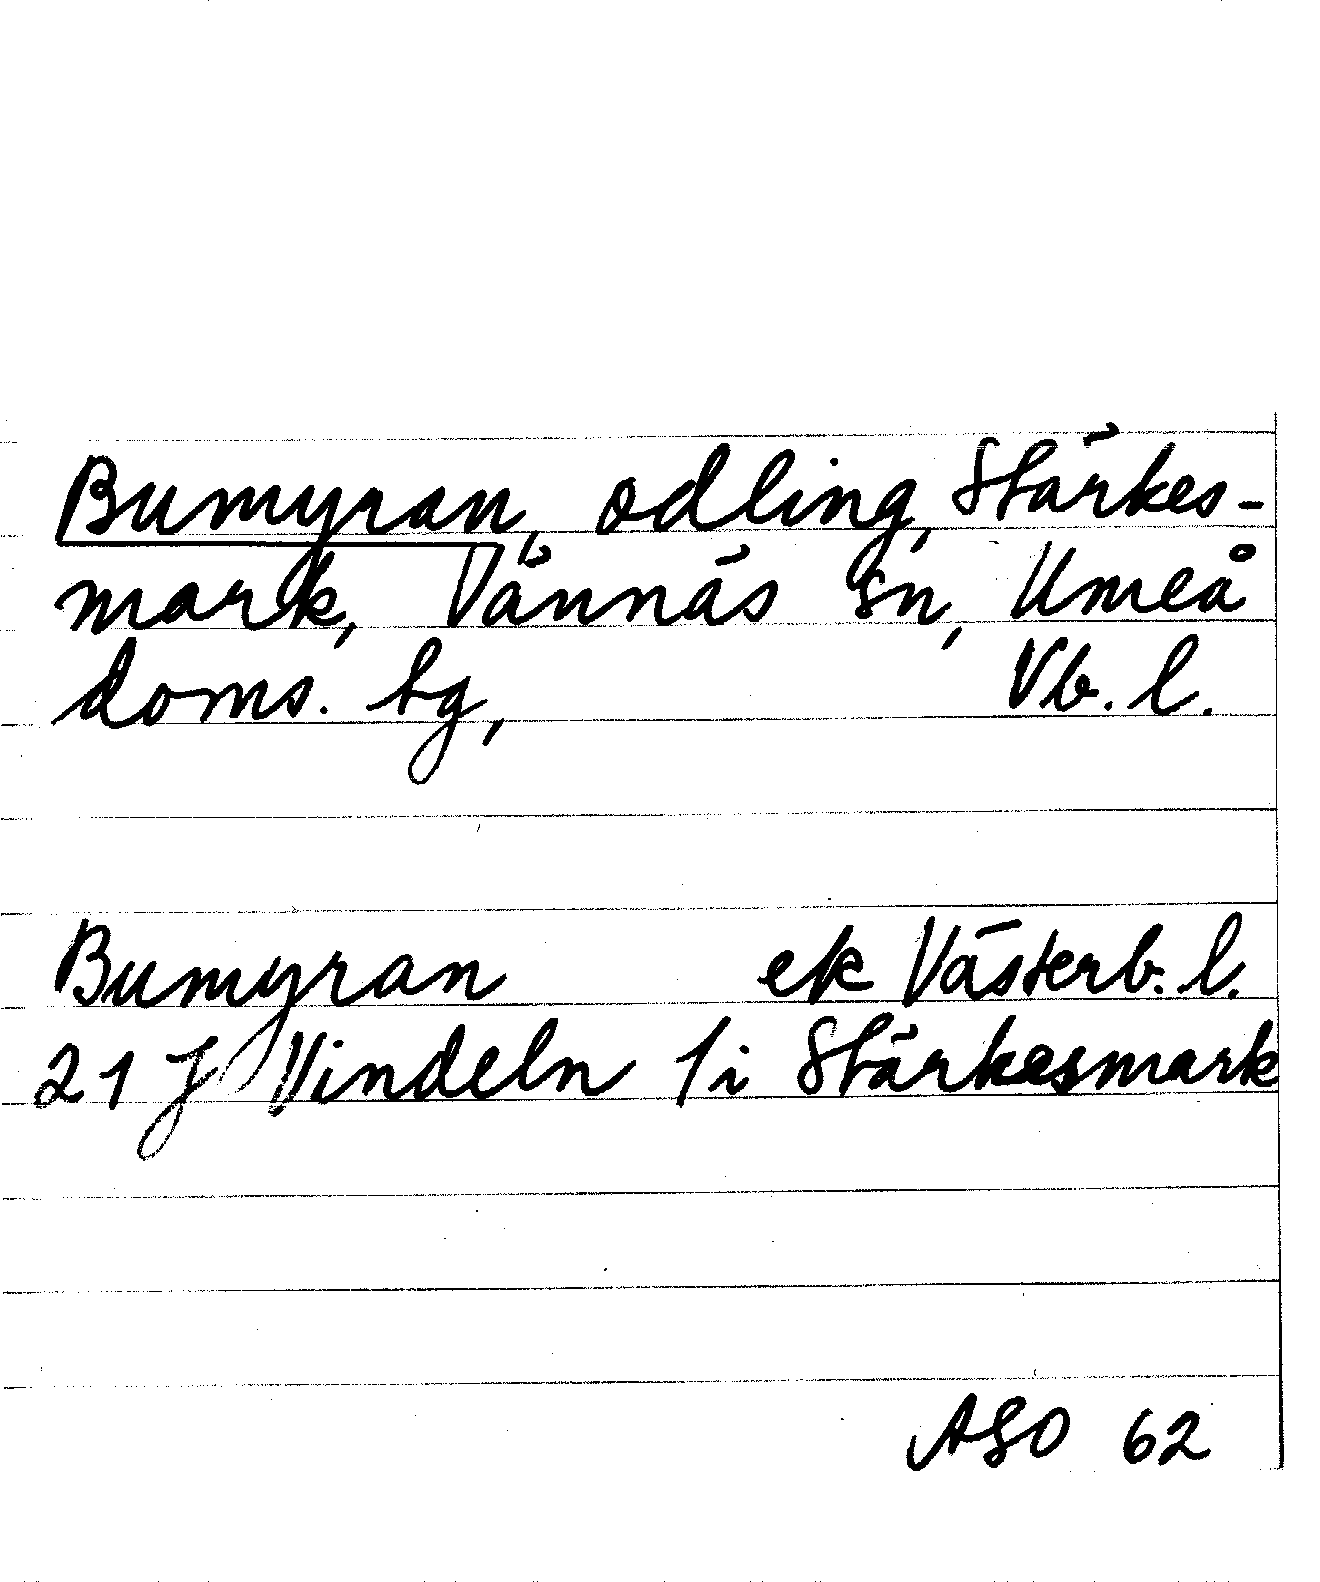 Bumyran, odling, Stärkes-
mark, Vännäs sn, Umeå
doms. tg, Vb. l.
Bumyran ek Västerb. l.
21 J Vindeln 1i Stärkesmark
ASO 62